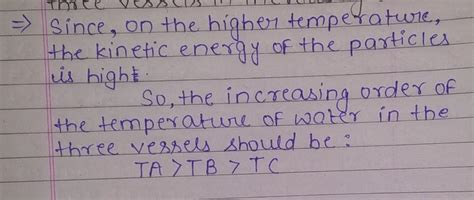 three vessels in
⇒ Since, on the higher temperature,
the kinetic energy of the particles
is hight.
So, the increasing order of
the temperature of water in the
three vessels should be :
TA > TB > TC